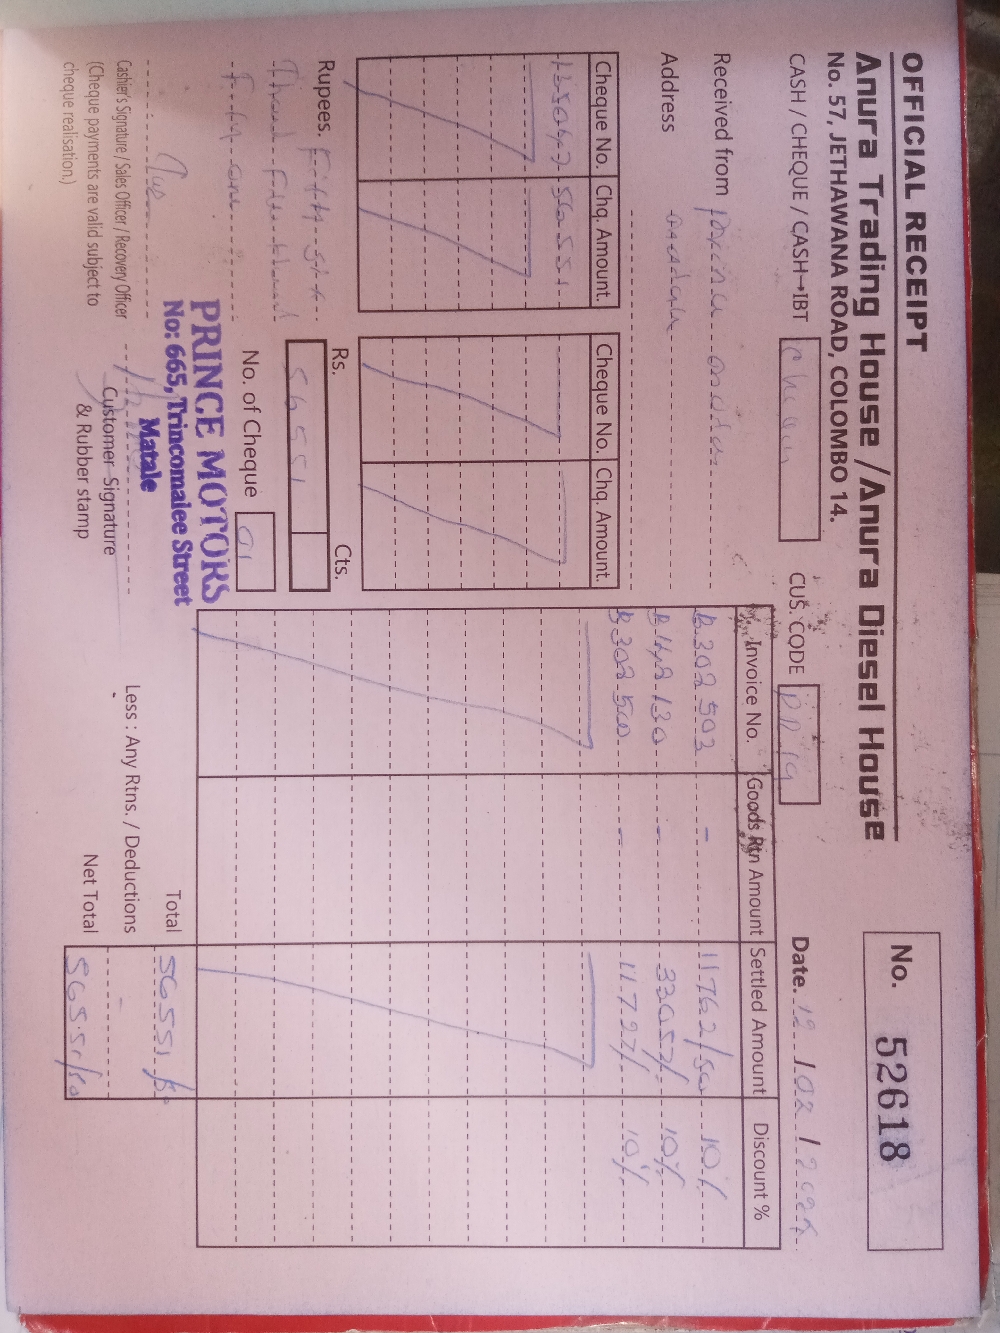 OFFICIAL RECEIPT
Anura Trading House / Anura Diesel House
No. 57, JETHAWANA ROAD, COLOMBO 14.
No. 52618
CASH / CHEQUE / CASH→IBT
CUS. CODE
Date. 12 / 02 /
Received from
Address
Cheque No. Chq. Amount. Cheque No. Chq. Amount.
56551
Rupees. Fifty six
Thousand Five hundred
Fifty one
Rs. Cts.
56551
No. of Cheque 01
Invoice No. Goods Rtn Amount Settled Amount Discount %
302503 - 11762/50 10%
- 33057/- 10%
- 11727/- 10%
Total 56551
Less : Any Rtns. / Deductions -
Net Total
PRINCE MOTORS
No: 665, Trincomalee Street
Matale
Cashier's Signature / Sales Officer / Recovery Officer
(Cheque payments are valid subject to
cheque realisation.)
Customer Signature
& Rubber stamp